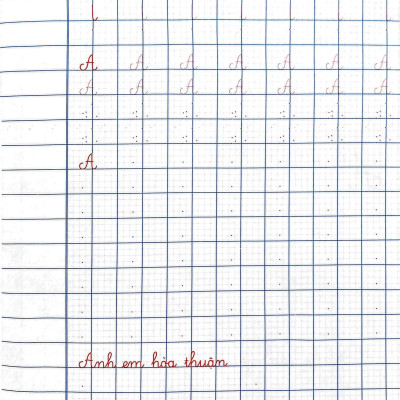 A A A A A A A
A A A A A A A
A
Anh em hòa thuận